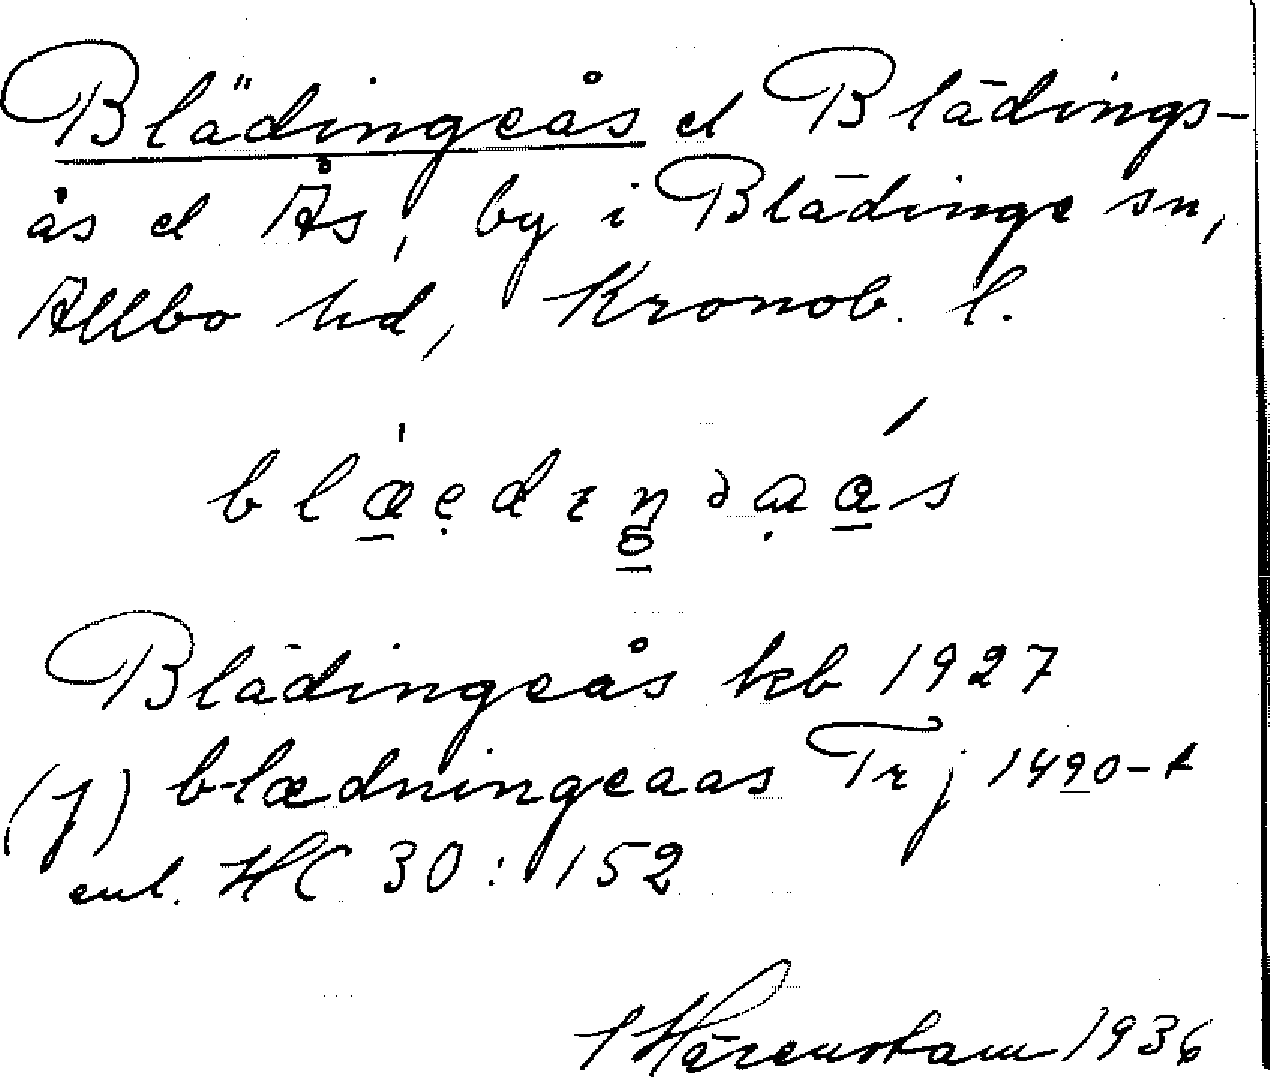 Blädingeås el Blädings-
ås el Ås, by i Blädinge sn,
Allbo hd, Kronob. l.
Blädingeås kb 1927
(j) blædningeaas Trj 1490-t
enl. HC 30:152
Härenstam 1936